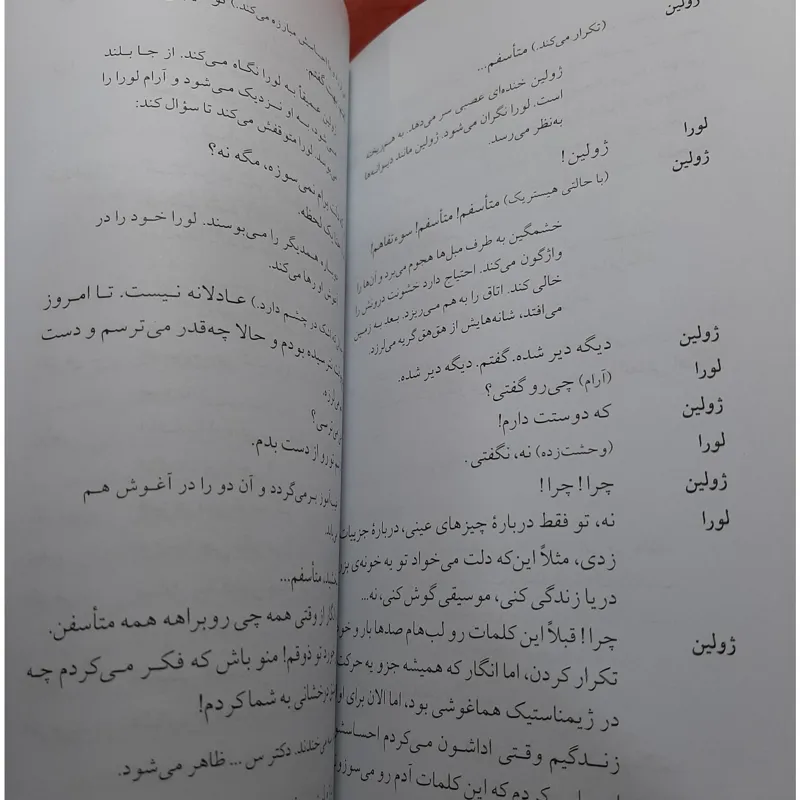 ژولین
(تکرار می‌کند.) متأسفم...
ژولین خنده‌ای عصبی سر می‌دهد. به هم‌ریخته
است. لورا نگران می‌شود. ژولین مانند دیوانه‌ها
به‌نظر می‌رسد.
لورا ژولین!
ژولین (با حالتی هیستریک) متأسفم! متأسفم! سوءتفاهم!
خشمگین به طرف مبل‌ها هجوم می‌برد و آن‌ها را
واژگون می‌کند. احتیاج دارد خشونت درونش را
خالی کند. اتاق را به هم می‌ریزد. بعد به زمین
می‌افتد، شانه‌هایش از هق‌هق گریه می‌لرزد.
ژولین دیگه دیر شده. گفتم. دیگه دیر شده.
لورا (آرام) چی‌رو گفتی؟
ژولین که دوستت دارم!
لورا (وحشت‌زده) نه، نگفتی.
ژولین چرا! چرا!
لورا نه، تو فقط دربارۀ چیزهای عینی، دربارۀ جزییات
زدی، مثلاً این‌که دلت می‌خواد تو یه خونه‌ی
دریا زندگی کنی، موسیقی گوش کنی، نه...
ژولین چرا! قبلاً این کلمات رو لب‌هام صدها بار و
تکرار کردن، اما انگار که همیشه جزو یه حرکت
در ژیمناستیک هماغوشی بود، اما الان برای
زندگیم وقتی اداشون می‌کردم
کردم که این کلمات آدم رو
مبارزه می‌کند.)
گفتم.
عمیقاً به لورا نگاه می‌کند. از جا بلند
می‌شود، به او نزدیک می‌شود و آرام لورا را
می‌بوسد. لورا متوقفش می‌کند تا سؤال کند:
برام نمی‌سوزه، مگه نه؟
یک لحظه.
همدیگر را می‌بوسند. لورا خود را در
رها می‌کند.
اشک در چشم دارد.) عادلانه نیست. تا امروز
نترسیده بودم و حالا چه‌قدر می‌ترسم و دست
می‌ترسی؟
تو رو از دست بدم.
برمی‌گردد و آن دو را در آغوش هم
متأسفم...
انگار از وقتی همه چی روبراهه همه متأسفن.
تو ذوقم! منو باش که فکر می‌کردم چه
درخشانی به شما کردم!
می‌خندند. دکتر س... ظاهر می‌شود.